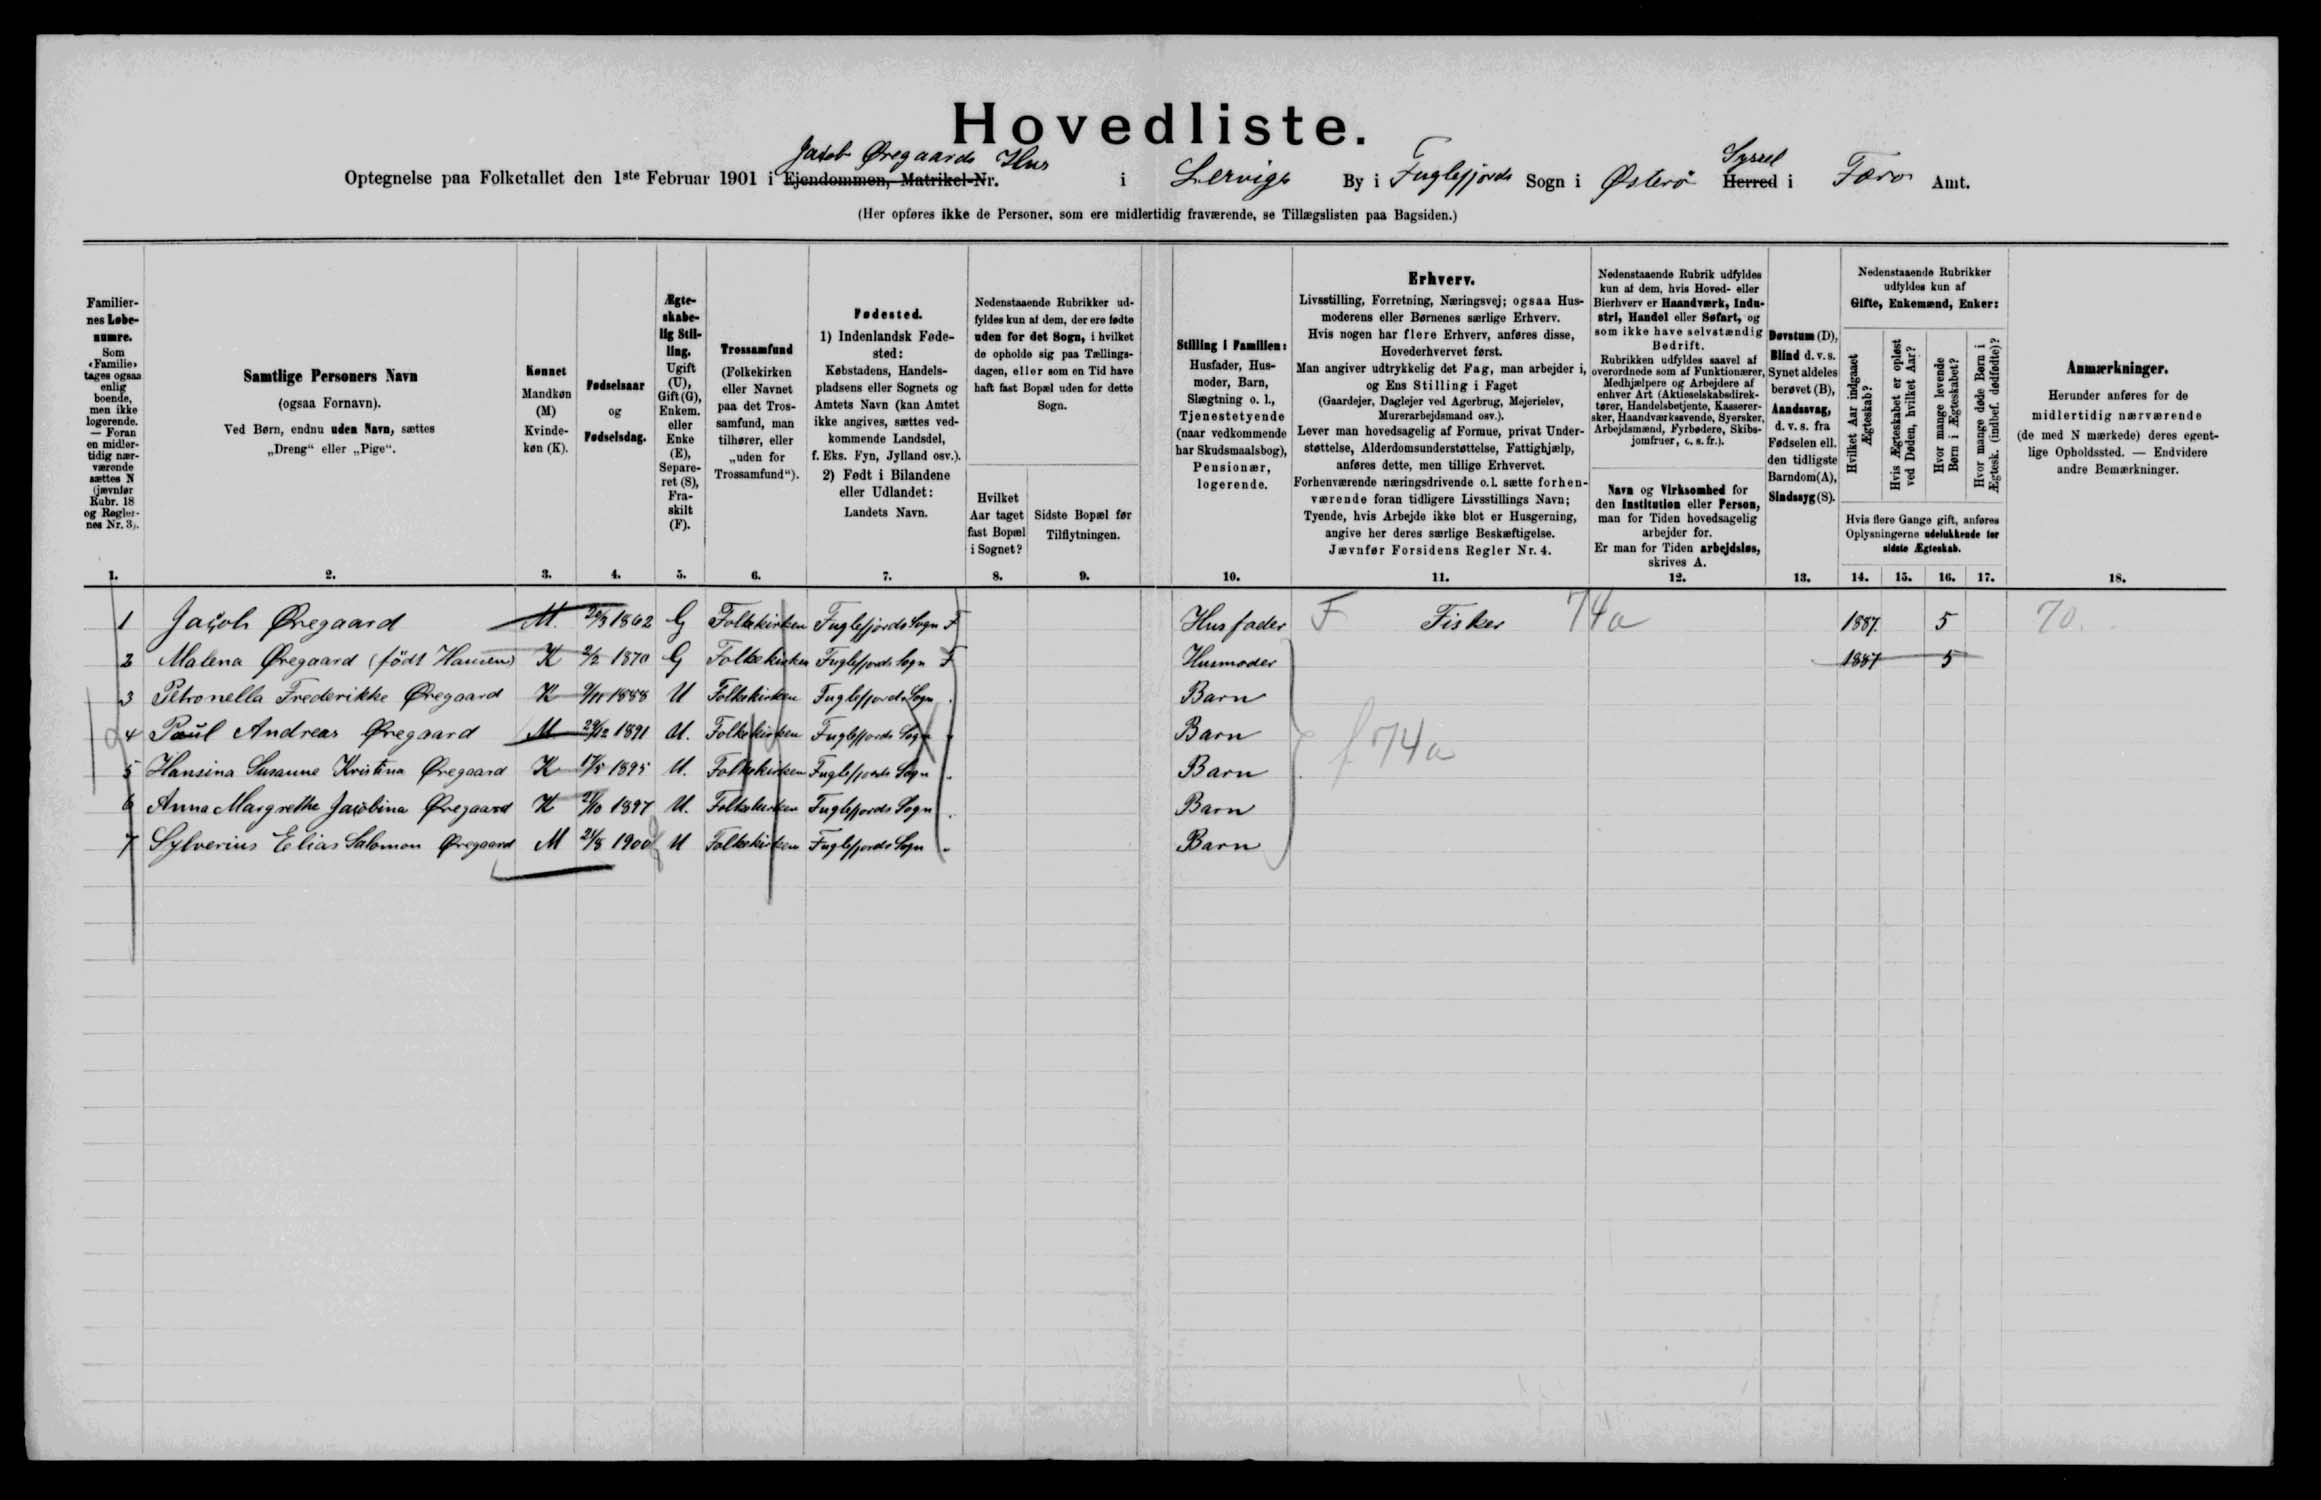 Hovedliste.
Optegnelse paa Folketallet den 1ste Februar 1901 i Ejendommen, Matrikel-Nr. Jacob Øregaards Hus i Lervigs By i Fuglefjords Sogn i Østerø Herred Syssel i Færø Amt.
(Her opføres ikke de Personer, som ere midlertidig fraværende, se Tillægslisten paa Bagsiden.)
Familier-
nes Løbe-
numre.
Som
«Familie»
tages ogsaa
enlig
boende,
men ikke
logerende.
— Foran
en midler-
tidig nær-
værende
sættes N
(jævnfør
Rubr. 18
og Regler-
nes Nr. 3).
1.
Samtlige Personers Navn
(ogsaa Fornavn).
Ved Børn, endnu uden Navn, sættes
„Dreng“ eller „Pige“.
2.
Kønnet
Mandkøn
(M)
Kvinde-
køn (K).
3.
Fødselsaar
og
Fødselsdag.
4.
Ægte-
skabe-
lig Stil-
ling.
Ugift
(U),
Gift (G),
Enkem.
eller
Enke
(E),
Separe-
ret (S),
Fra-
skilt
(F).
5.
Trossamfund
(Folkekirken
eller Navnet
paa det Tros-
samfund, man
tilhører, eller
„uden for
Trossamfund“).
6.
Fødested.
1) Indenlandsk Føde-
sted:
Købstadens, Handels-
pladsens eller Sognets og
Amtets Navn (kan Amtet
ikke angives, sættes ved-
kommende Landsdel,
f. Eks. Fyn, Jylland osv.).
2) Født i Bilandene
eller Udlandet:
Landets Navn.
7.
Nedenstaaende Rubrikker ud-
fyldes kun af dem, der ere fødte
uden for det Sogn, i hvilket
de opholde sig paa Tællings-
dagen, eller som en Tid have
haft fast Bopæl uden for dette
Sogn.
Hvilket
Aar taget
fast Bopæl
i Sognet?
8.
Sidste Bopæl før
Tilflytningen.
9.
Stilling i Familien:
Husfader, Hus-
moder, Barn,
Slægtning o. l.,
Tjenestetyende
(naar vedkommende
har Skudsmaalsbog),
Pensionær,
logerende.
10.
Erhverv.
Livsstilling, Forretning, Næringsvej; ogsaa Hus-
moderens eller Børnenes særlige Erhverv.
Hvis nogen har flere Erhverv, anføres disse,
Hovederhvervet først.
Man angiver udtrykkelig det Fag, man arbejder i,
og Ens Stilling i Faget
(Gaardejer, Daglejer ved Agerbrug, Mejerielev,
Murerarbejdsmand osv.).
Lever man hovedsagelig af Formue, privat Under-
støttelse, Alderdomsunderstøttelse, Fattighjælp,
anføres dette, men tillige Erhvervet.
Forhenværende næringsdrivende o. l. sætte forhen-
værende foran tidligere Livsstillings Navn;
Tyende, hvis Arbejde ikke blot er Husgerning,
angive her deres særlige Beskæftigelse.
Jævnfør Forsidens Regler Nr. 4.
11.
Nedenstaaende Rubrik udfyldes
kun af dem, hvis Hoved- eller
Bierhverv er Haandværk, Indu-
stri, Handel eller Søfart, og
som ikke have selvstændig
Bedrift.
Rubrikken udfyldes saavel af
overordnede som af Funktionærer,
Medhjælpere og Arbejdere af
enhver Art (Aktieselskabsdirek-
tører, Handelsbetjente, Kasserer-
sker, Haandværkssvende, Syersker,
Arbejdsmænd, Fyrbødere, Skibs-
jomfruer, o. s. fr.).
Navn og Virksomhed for
den Institution eller Person,
man for Tiden hovedsagelig
arbejder for.
Er man for Tiden arbejdsløs,
skrives A.
12.
Døvstum (D),
Blind d. v. s.
Synet aldeles
berøvet (B),
Aandssvag,
d. v. s. fra
Fødselen ell.
den tidligste
Barndom (A),
Sindssyg (S).
13.
Nedenstaaende Rubrikker
udfyldes kun af
Gifte, Enkemænd, Enker:
Hvilket Aar indgaaet
Ægteskab?
Hvis Ægteskabet er opløst
ved Døden, hvilket Aar?
Hvor mange levende
Børn i Ægteskabet?
Hvor mange døde Børn i
Ægtesk. (indbef. dødfødte)?
Hvis flere Gange gift, anføres
Oplysningerne udelukkende for
sidste Ægteskab.
14. 15. 16. 17.
Anmærkninger.
Herunder anføres for de
midlertidig nærværende
(de med N mærkede) deres egent-
lige Opholdssted. — Endvidere
andre Bemærkninger.
18.
1 Jacob Øregaard M 1862 G Folkekirken Fuglefjords Sogn F Husfader F Fisker 74a 1887. 5 70.
2 Malena Øregaard (født Hansen) K 2/2 1870 G Folkekirken Fuglefjords Sogn F Husmoder 1887 5
3 Petronella Frederikke Øregaard K 1888 U Folkekirken Fuglefjords Sogn Barn
4 Paul Andreas Øregaard M 29/12 1891 U. Folkekirken Fuglefjords Sogn Barn f. 74a
5 Hansina Susanne Kristina Øregaard K 17/5 1895 U. Folkekirken Fuglefjords Sogn Barn
6 Anna Margrethe Jacobina Øregaard K 1897 U. Folkekirken Fuglefjords Sogn Barn
7 Sylverius Elias Salomon Øregaard M 21/8 1900 U Folkekirken Fuglefjords Sogn Barn